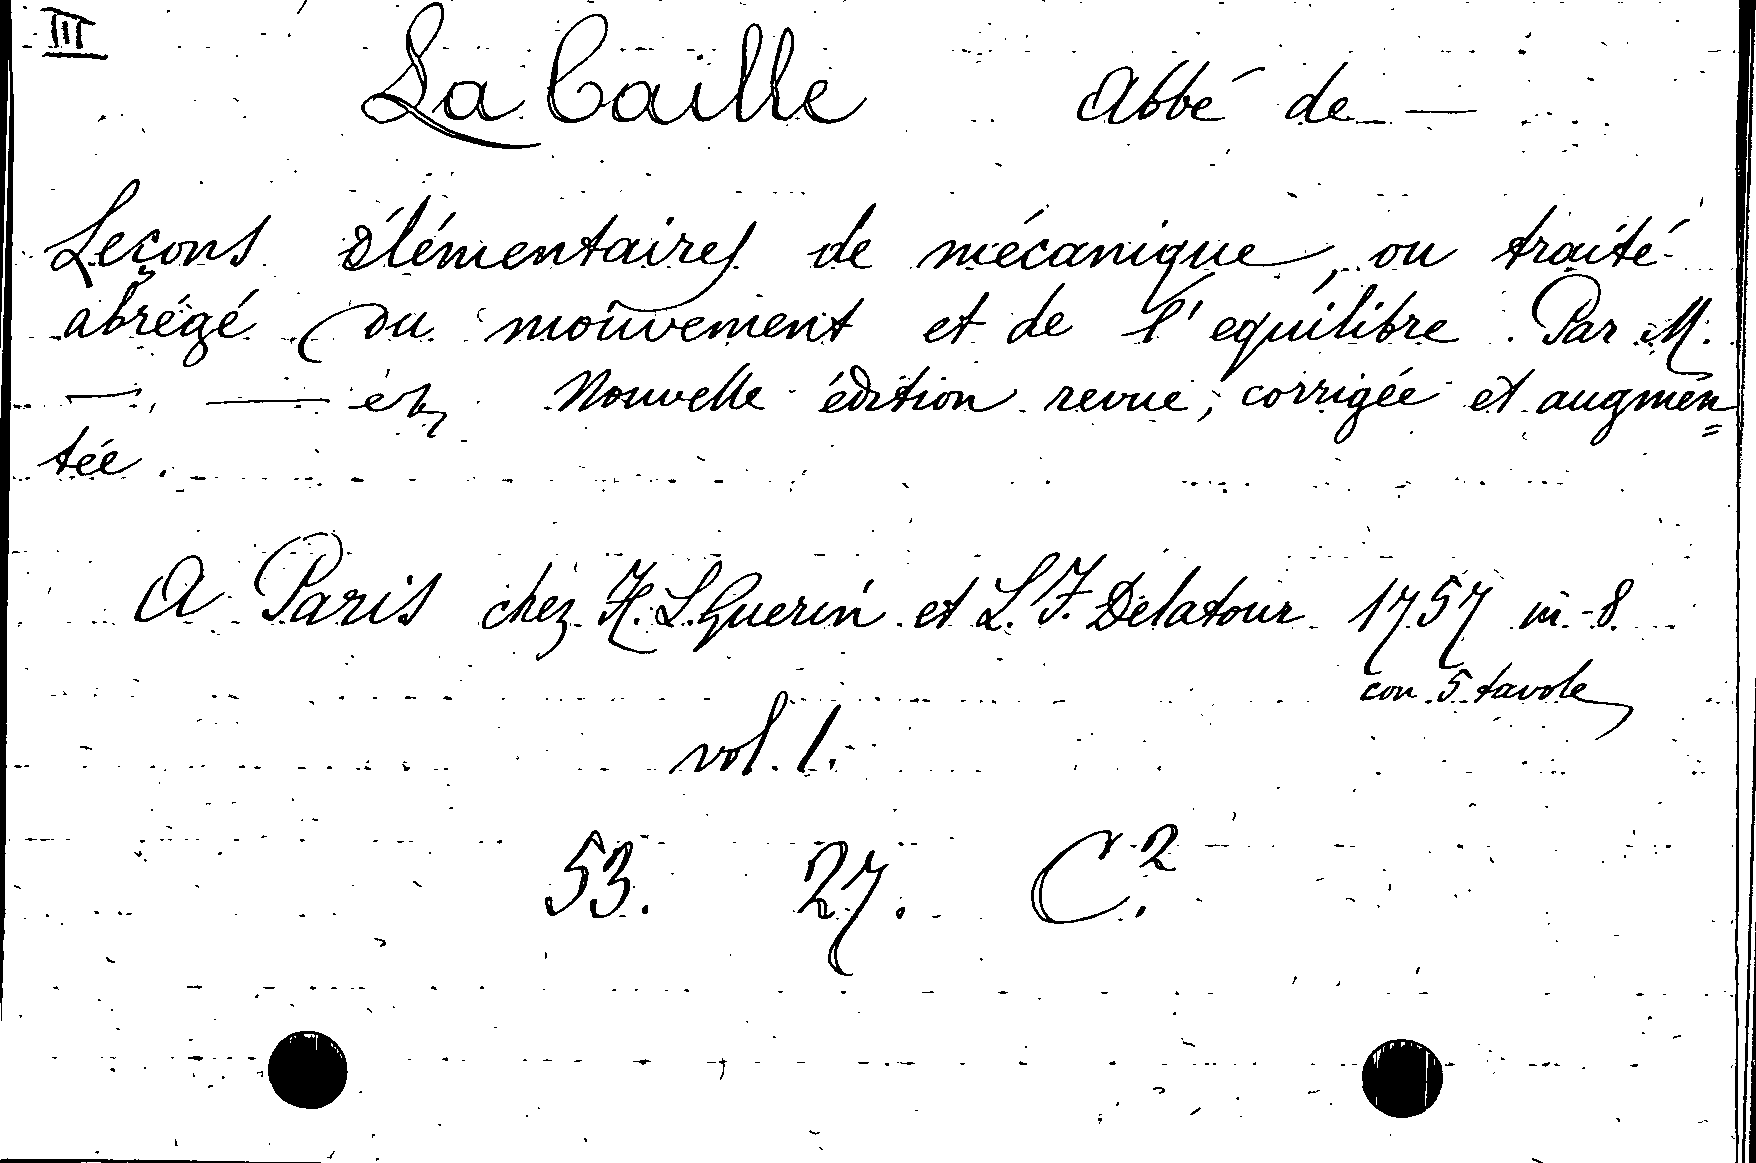 III
La Caille Abbé de —
Leçons élémentaires de mécanique, ou traité
abrégé du mouvement et de l'equilibre. Par M.
—, — etc. Nouvelle édition revue, corrigée et augmen=
tée.
A Paris chez H. L. Guerin et L. F. Delatour 1757 in-8.
con 5 tavole
vol. 1.
53. 27. C.2